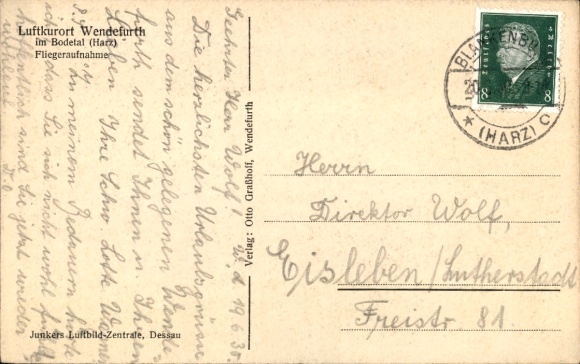 Luftkurort Wendefurth
im Bodetal (Harz)
Fliegeraufnahme
Geehrter Herr Wolf!
W. d. 19.6.30.
Die herzlichsten Urlaubsgrüsse
aus dem schön gelegenen Wende-
furth sendet Ihnen u. Ihren
Lieben Ihre Schw. Lotte
In meinem Bedauern hörte
ich, dass Sie sich nicht wohl
hoffentlich sind Sie jetzt wieder
Junkers Luftbild-Zentrale, Dessau
Verlag: Otto Graßhoff, Wendefurth
Deutsches Reich
8 8
BLANKENBURG
(HARZ) C
Herrn
Direktor Wolf,
Eisleben/Lutherstadt
Freistr. 81